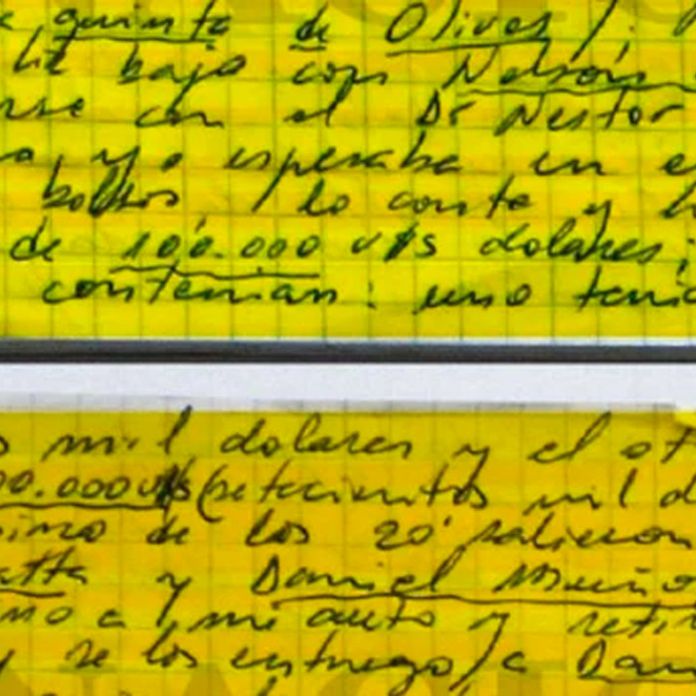 quinta de Olivos/.
bajo con Nelson
con el Dr Nestor
y yo esperaba en e
bolsos / lo conte y l
de 100.000 u$s dolares,
contenian: uno teni
mil dolares y el ot
00.000 u$s (setecientos mil d
de los 20' salieron
atta y Daniel Muño
a mi auto y retir
y se los entrego/a Dan